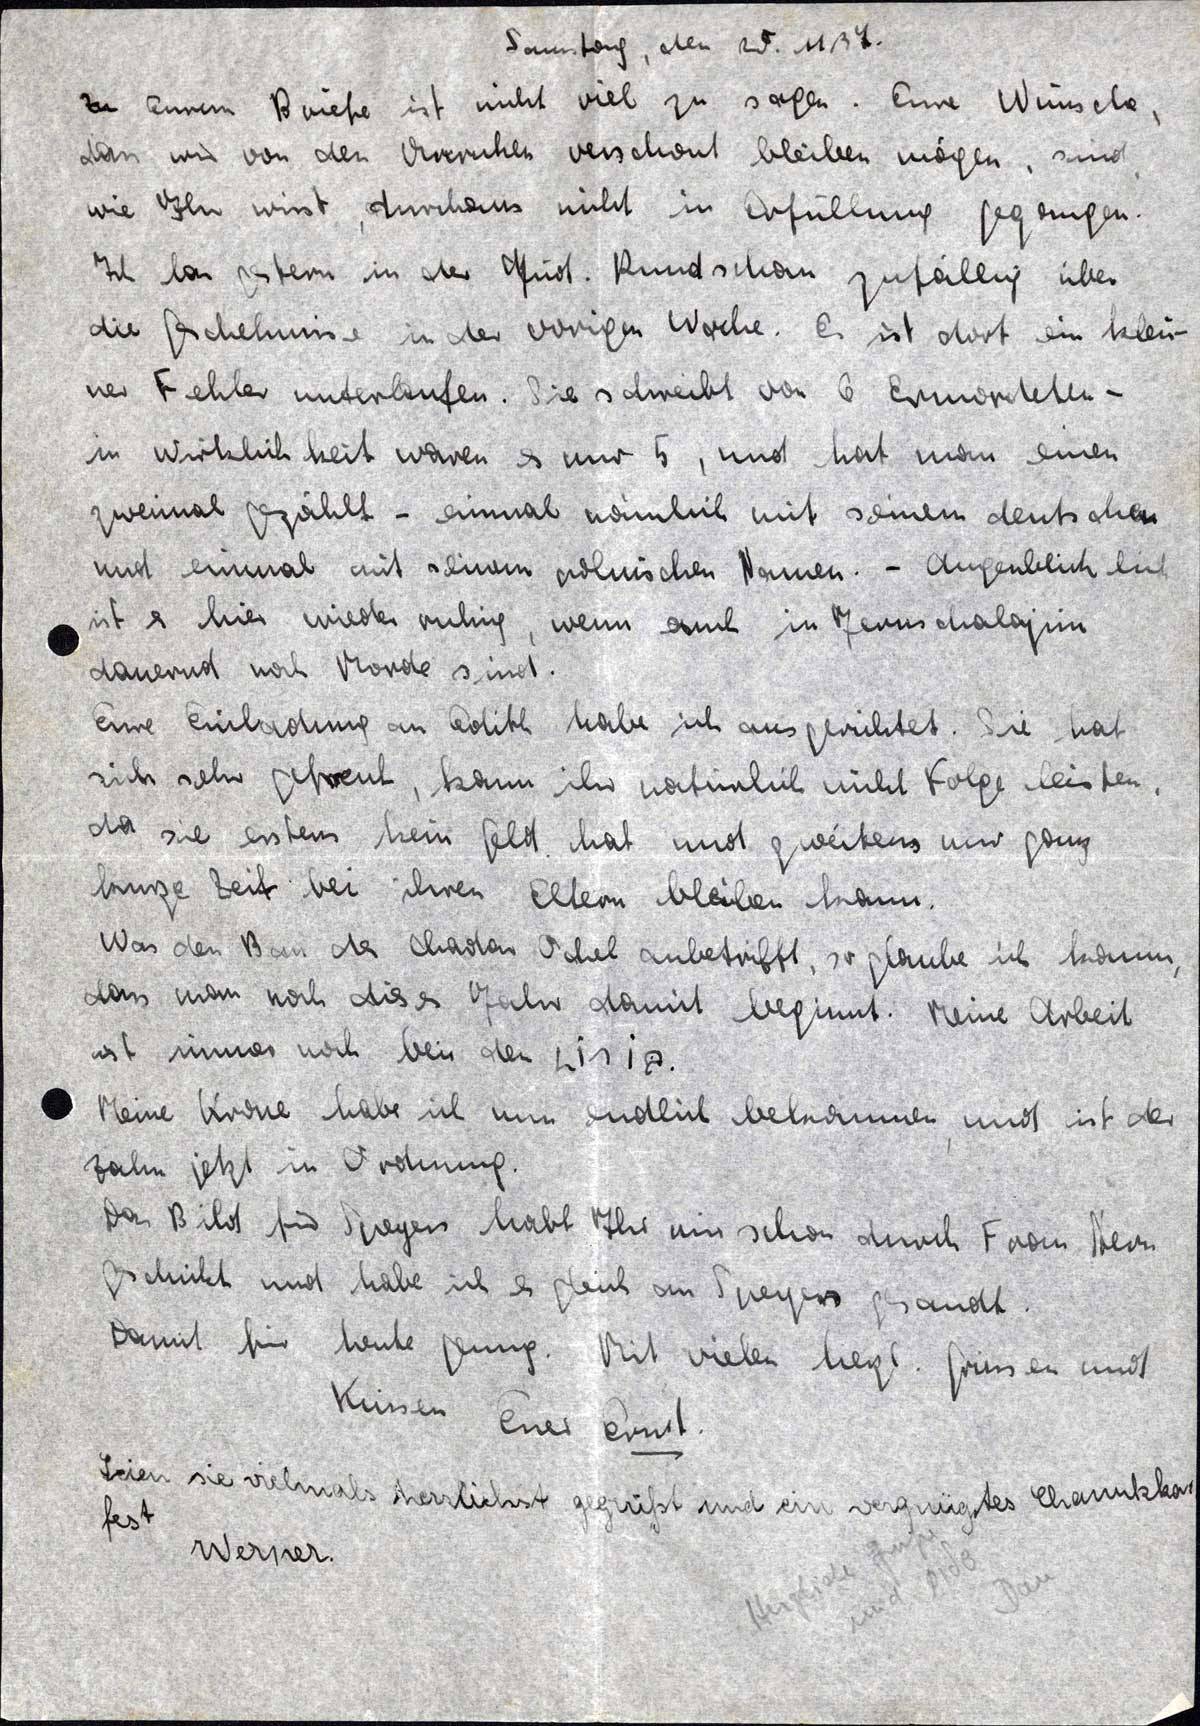 Samstag, den 20. 11 37.
Zu Eurem Briefe ist nicht viel zu sagen. Eure Wünsche,
dass wir von den Unruhen verschont bleiben mögen, sind,
wie Ihr wisst, durchaus nicht in Erfüllung gegangen.
Ich las gestern in der Jüd. Rundschau zufällig über
die Geschehnisse in der vorigen Woche. Es ist dort ein klei-
ner Fehler unterlaufen. Sie schreibt von 6 Ermordeten -
in Wirklichkeit waren es nur 5, und hat man einen
zweimal gezählt - einmal nämlich mit seinem deutschen
und einmal mit seinem polnischen Namen. - Augenblicklich
ist es hier wieder ruhig, wenn auch in Jeruschalajim
dauernd noch Morde sind.
Eure Einladung an Edith habe ich ausgerichtet. Sie hat
sich sehr gefreut, kann ihr natürlich nicht Folge leisten,
da sie erstens kein Geld hat und zweitens nur ganz
kurze Zeit bei ihren Eltern bleiben kann.
Was den Bau des Chadar Ochel anbetrifft, so glaube ich kaum,
dass man noch dieses Jahr damit beginnt. Meine Arbeit
ist immer noch bei den
Meine Krone habe ich nun endlich bekommen, und ist der
Zahn jetzt in Ordnung.
Das Bild für Speyers habt Ihr mir schon durch Frau Stern
geschickt und habe ich es gleich an Speyers gesandt.
Damit für heute genug. Mit vielen herzl. Grüssen und
Küssen Euer Ernst.
Seien sie vielmals herzlichst gegrüßt und ein vergnügtes Chanukka
fest
Werner.
Herzliche Grüße
und